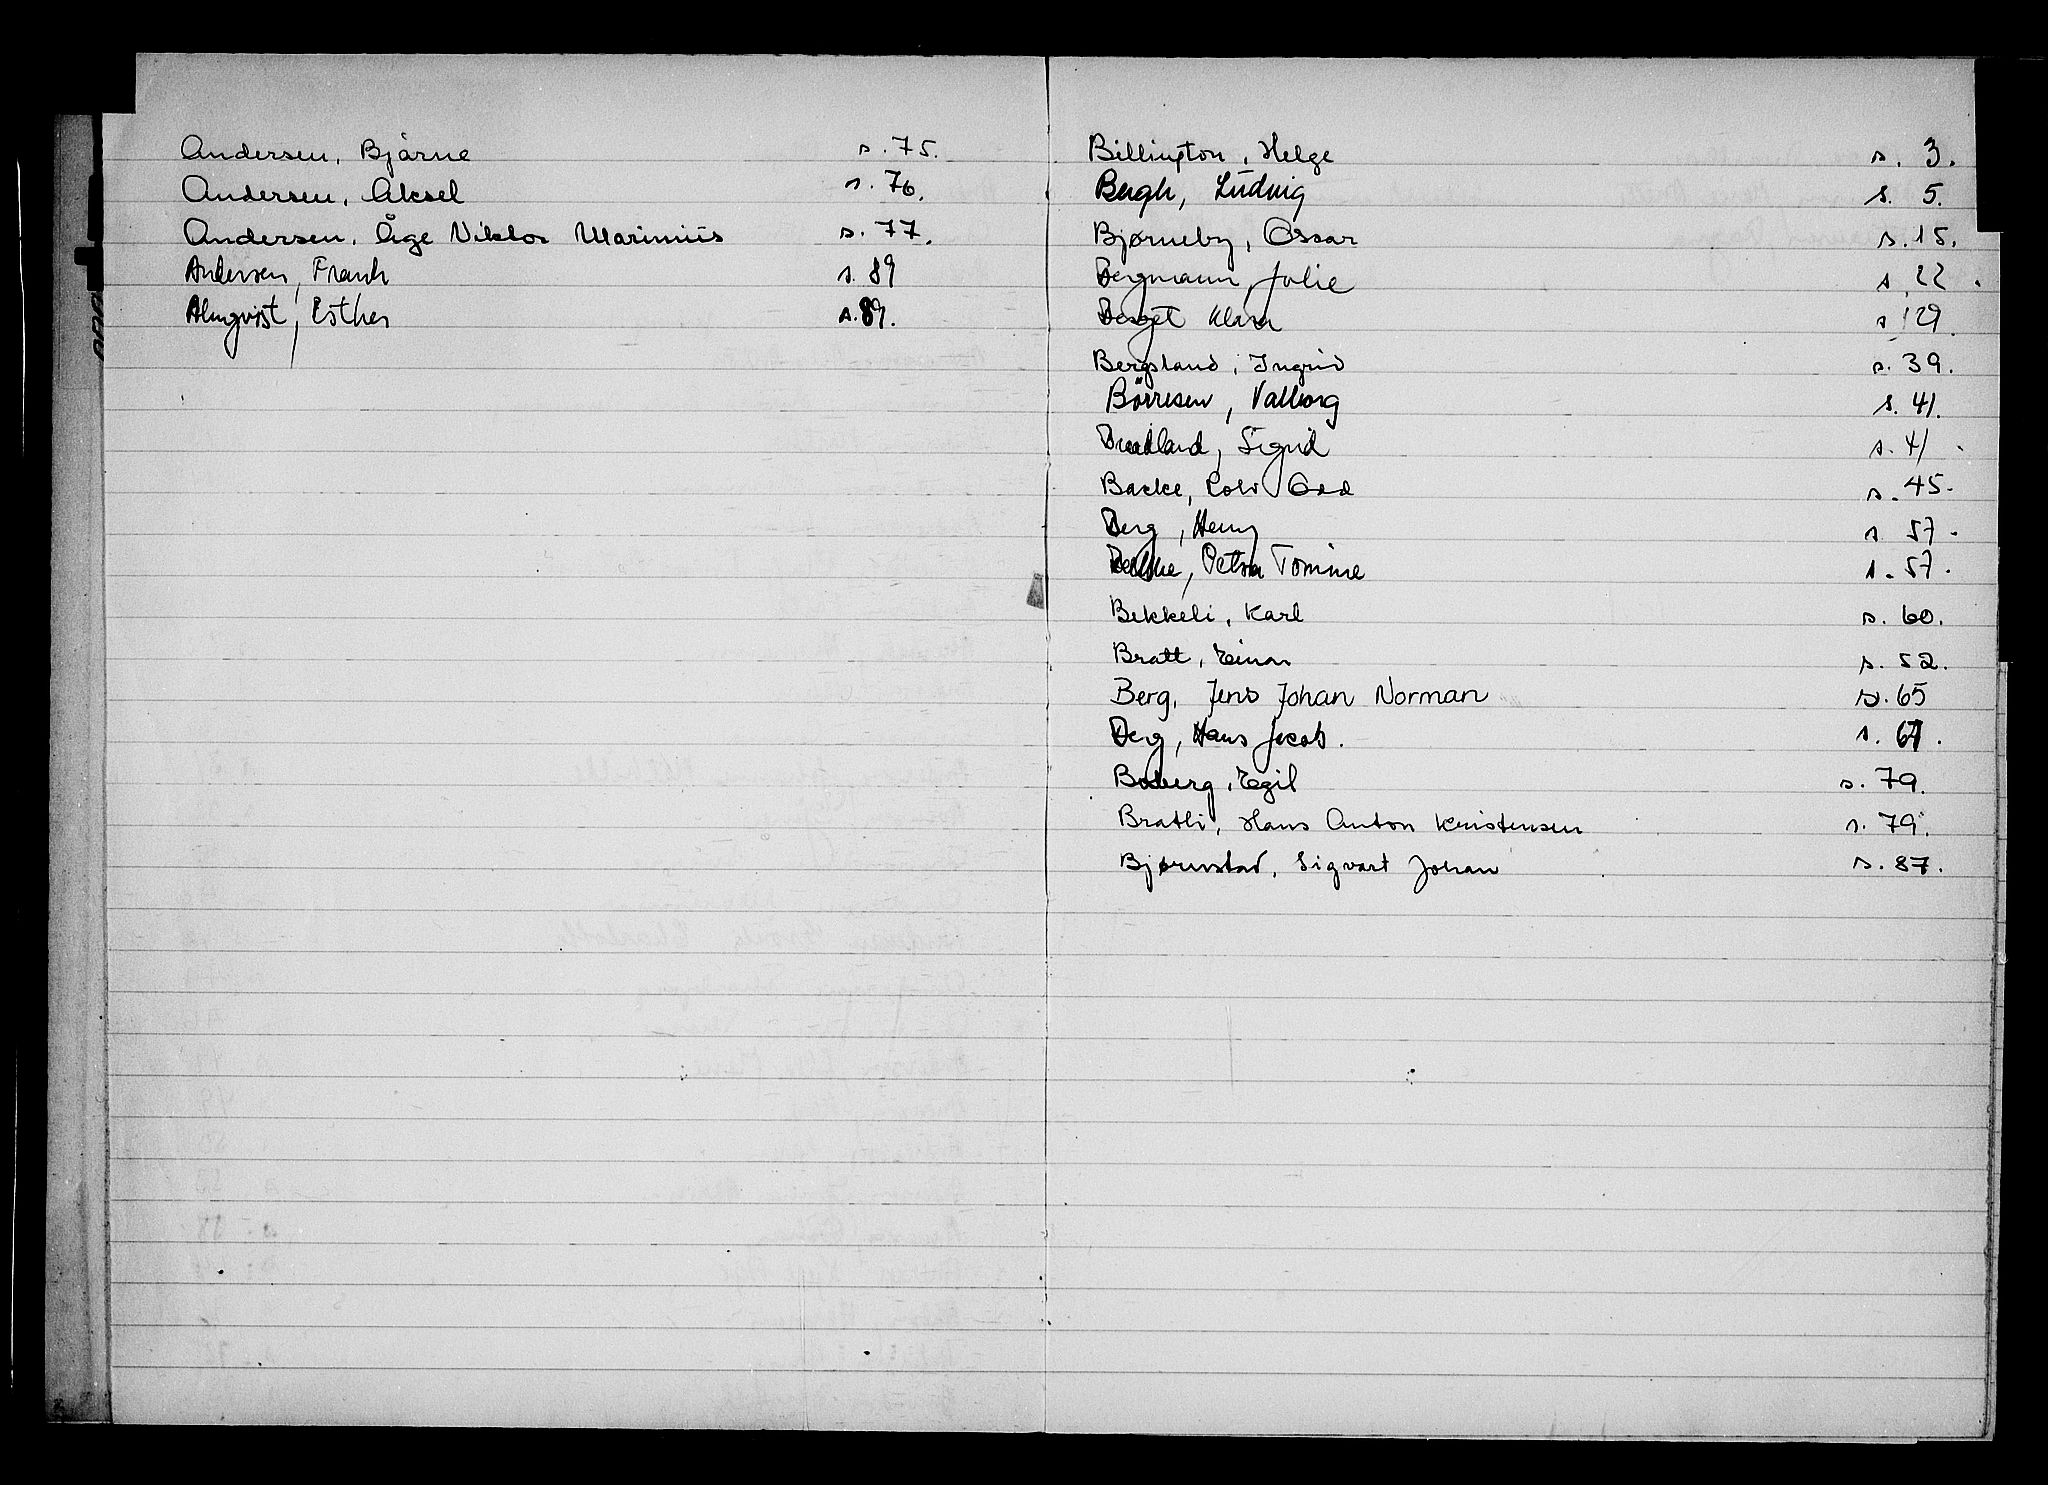 Andersen, Bjarne s. 75.
Andersen, Aksel s. 76.
Andersen, Åge Viktor Marinius s. 77.
Andersen, Frank s. 89
Almqvist, Esther s. 89.
Billington, Helge s. 3.
Bergh, Ludvig s. 5.
Bjørneby, Oscar s. 15.
Bergmann, Julie s. 22.
Berget Klara s. 29.
Bergsland, Ingrid s. 39.
Börresen, Valborg s. 41.
Sigrid s. 41.
Backe, Rolv Odd s. 45.
Berg, Henry s. 57.
Petra Tomine s. 57.
Bekkeli, Karl s. 60.
Bratt, Einar s. 52.
Berg, Jens Johan Norman s. 65
Berg, Hans Jacob. s. 67.
Boberg, Egil s. 79.
Bratli, Hans Anton Kristensen s. 79.
Bjørnstad, Sigvart Johan s. 87.